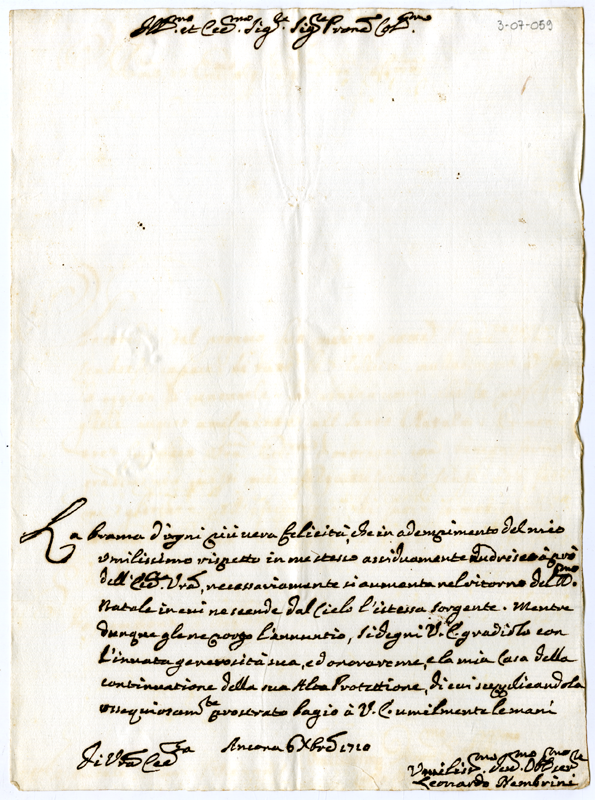 3-07-059
Ill.mo et Ecc.mo Sig.re Sig.re Pron.e Col.mo
La brama d'ogni più vera felicità, che in adempimento del mio
umilissimo rispetto in me stesso assiduamente nudrisco à prò
dell'Ecc.za Vra, necessariamente si aumenta nel ritorno del S.mo
Natale in cui ne scende dal Cielo l'istessa sorgente. Mentre
dunque gle ne porgo l'annuntio, si degni V.E. gradirlo con
l'innata generosità sua, ed onorar me, e la mia Casa della
continuatione della sua Alta Protettione, di cui supplicandola
ossequiosam.te prostrato bagio à V.E. umilmente le mani
Ancona 6 Xbre 1710
di Vra Ecc.za
Umiliss.mo Dev.mo Obl. Ser.re
Leonardo Nembrini